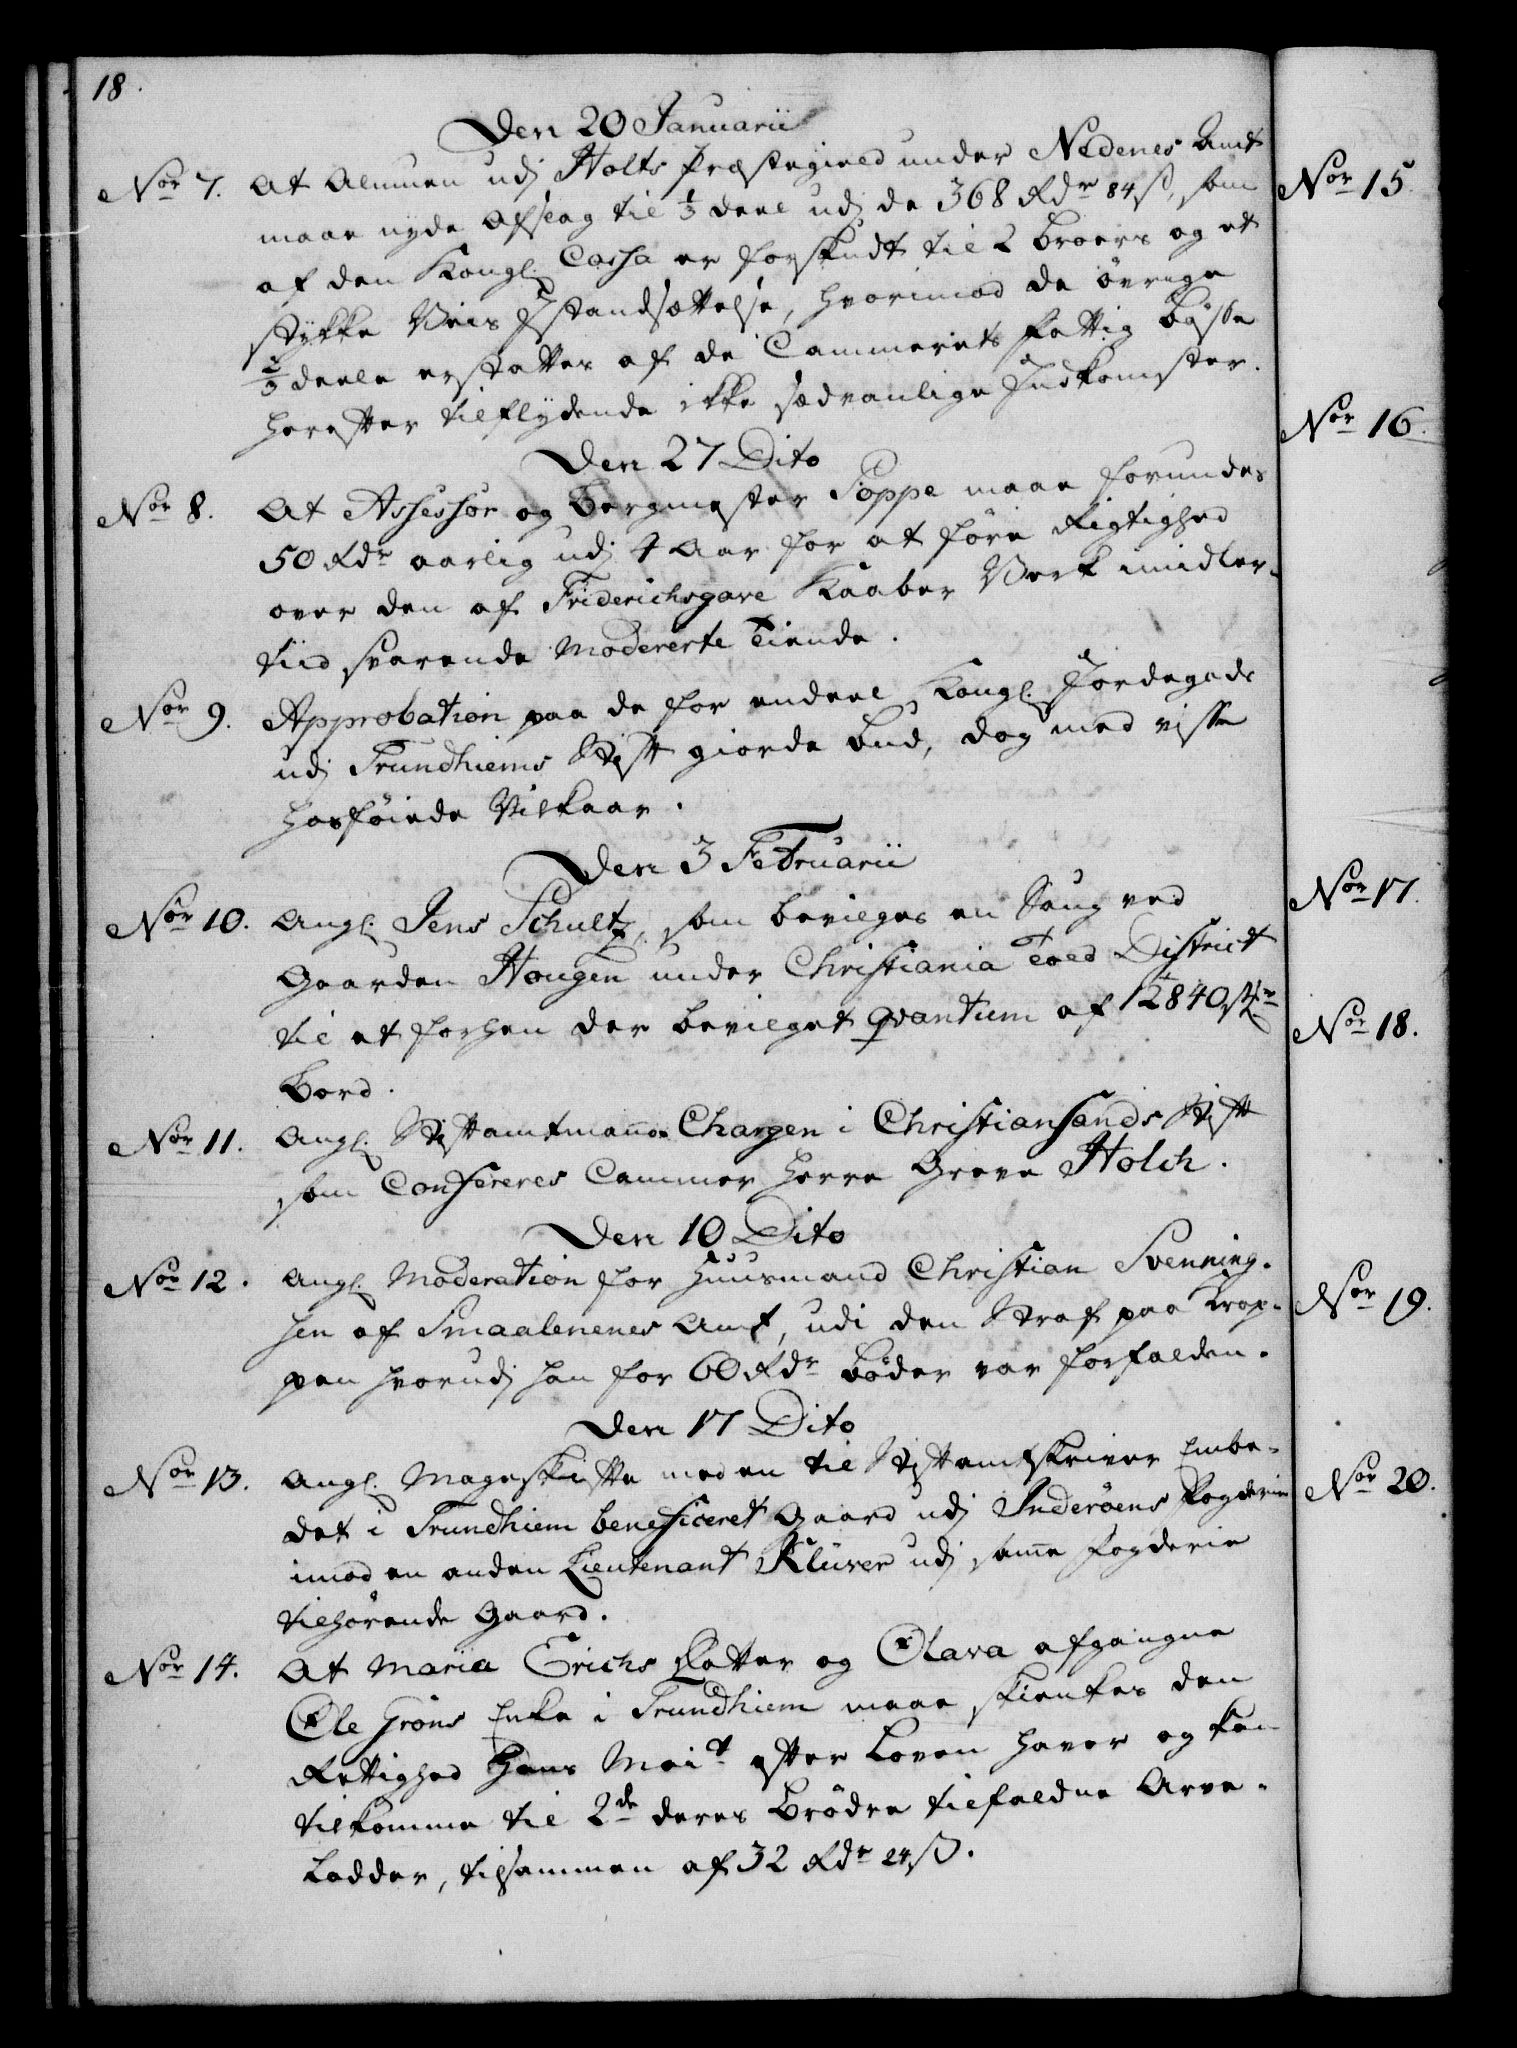 18.
Den 20 Januarii
No͞r 7. At Almuen udj Holts Præstegield under Nedenes Amt
maae nyde Afslag til 1/3 deel udj de 368 Rdr 84 ß, som
af den Kongl. Cassa er forskudt til 2 Broers og et
stykke Veis Istandsættelse, hvorimod de övrige
2/3 deele erstattes af de Cammerets Fattig Bösse
herefter tilflydende ikke sædvanlige Indkomster.
Den 27 Dito
No͞r 8. At Assessor og Bergmester Poppe maae forundes
50 Rdr aarlig udj 4 Aar for at före Rigtighed
over den af Friderichsgave Kaaber Verk imidler-
tiid svarende modererte Tiende.
No͞r 9. Approbation paa de for endeel Kongl. Jordegods
udj Trundhiems Stift giorde Bud, dog med visse
hosföiede Vilkaar.
Den 3 Februarii
No͞r 10. Angl. Jens Schultz, som bevilges en Saug ved
Gaarden Hougen under Christiania Told District
til et forhen der bevilget qvantum af 12840 Stkr
Bord.
No͞r 11. Angl. Stiftamtmands Chargen i Christiansands Stift
som Confereres Cammer Herre Greve Holch.
Den 10 Dito
No͞r 12. Angl. Moderation for Huusmand Christian Svenning-
sen af Smaalenenes Amt, udi den Straf paa Krop-
pen hvorudj han for 60 Rdr Böder var forfalden.
Den 17 Dito
No͞r 13. Angl. Mageskifte med en til Stiftamtskriver Embe-
det i Trundhiem beneficeret Gaard udj Inderöens Fogderie
imod en anden Lieutenant Klüver udj samme Fogderie
tilhörende Gaard.
No͞r 14. At Maria Erichs Datter og Olava afgangne
Ole Gröns Enke i Trundhiem maae skienkes den
Rettighed Hans Mait efter Loven haver og kan
tilkomme til 2de deres Brödre tilfaldne Arve-
Lodder, tilsammen af 32 Rdr 24 ß.
No͞r 15.
No͞r 16.
No͞r 17.
No͞r 18.
No͞r 19.
No͞r 20.